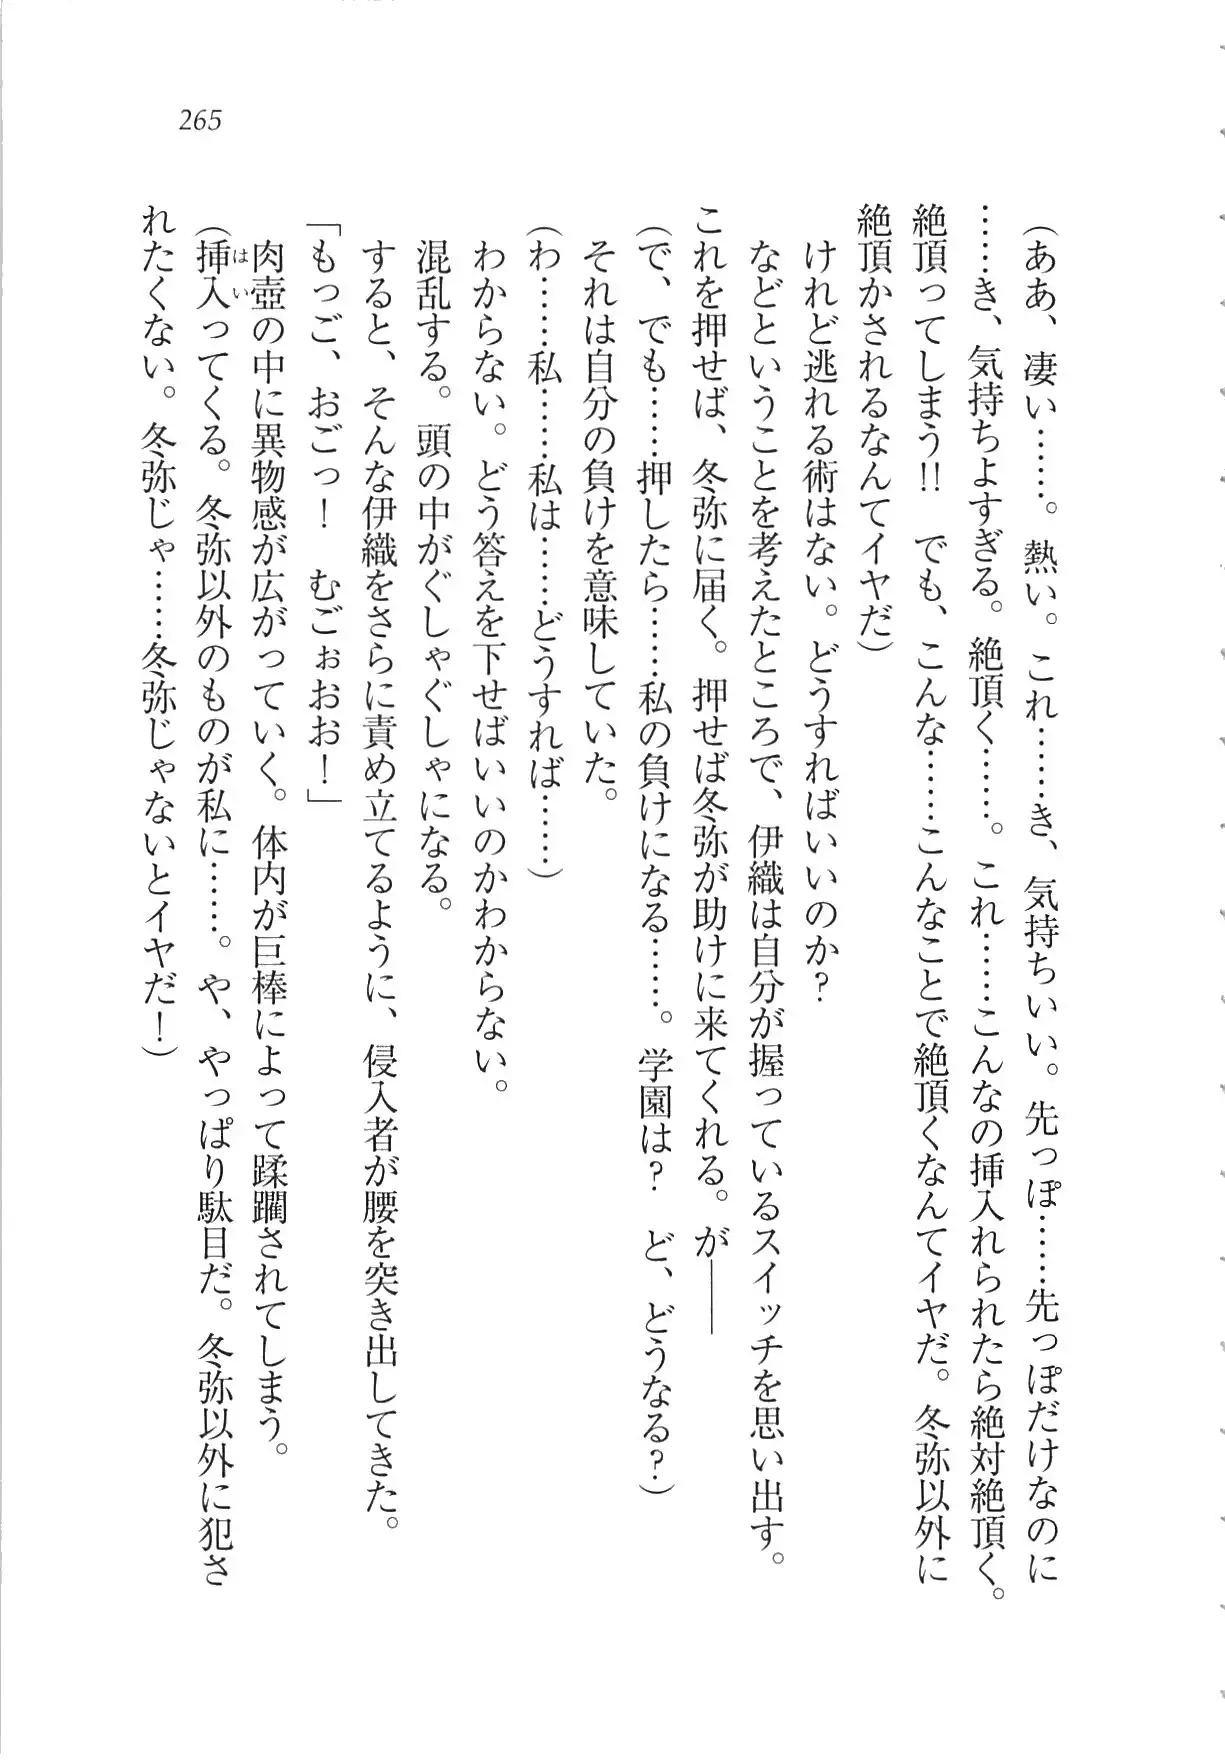 265
(ああ、凄い……。熱い。これ……き、気持ちいい。先っぽ……先っぽだけなのに
……き、気持ちよすぎる。絶頂く……。これ……こんなの挿入れられたら絶対絶頂く。
絶頂ってしまう!! でも、こんな……こんなことで絶頂くなんてイヤだ。冬弥以外に
絶頂かされるなんてイヤだ)
けれど逃れる術はない。どうすればいいのか?
などということを考えたところで、伊織は自分が握っているスイッチを思い出す。
これを押せば、冬弥に届く。押せば冬弥が助けに来てくれる。が――
(で、でも……押したら……私の負けになる……。学園は? ど、どうなる?)
それは自分の負けを意味していた。
(わ……私……私は……どうすれば……)
わからない。どう答えを下せばいいのかわからない。
混乱する。頭の中がぐしゃぐしゃになる。
すると、そんな伊織をさらに責め立てるように、侵入者が腰を突き出してきた。
「もっご、おごっ! むごぉおお!」
肉壺の中に異物感が広がっていく。体内が巨棒によって蹂躙されてしまう。
(挿入ってくる。冬弥以外のものが私に……。や、やっぱり駄目だ。冬弥以外に犯さ
はい
れたくない。冬弥じゃ……冬弥じゃないとイヤだ!)